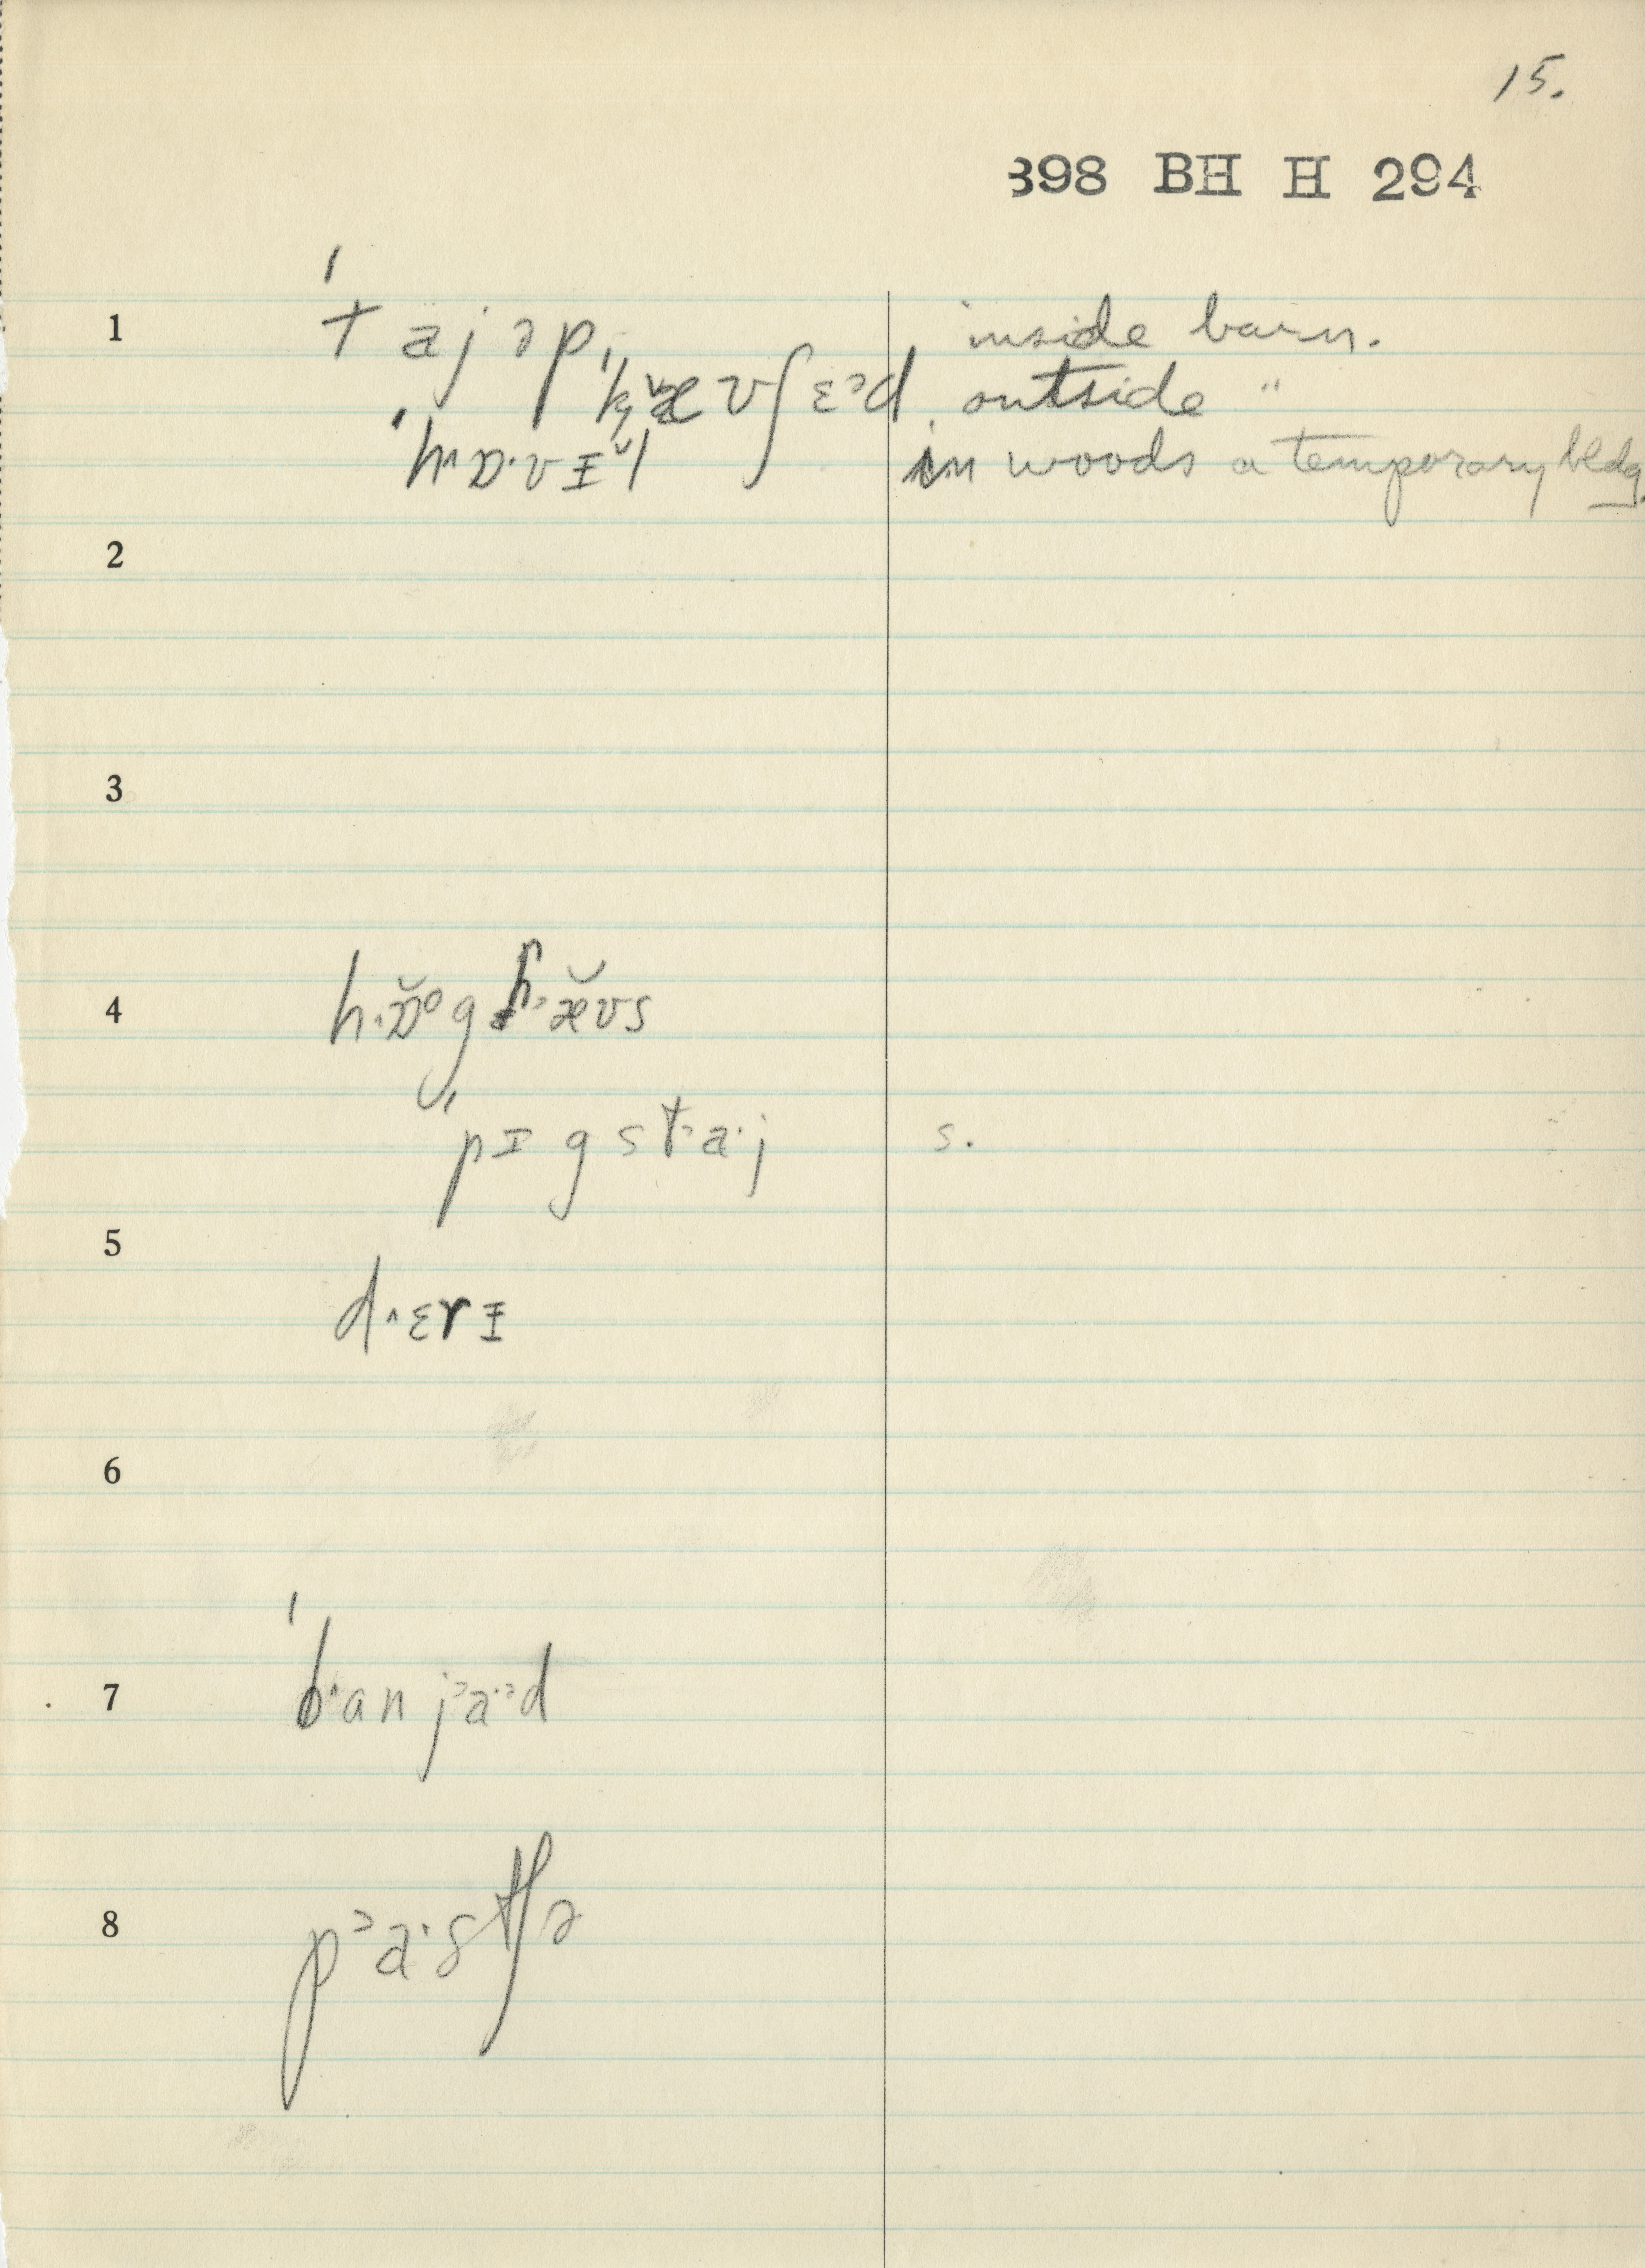 15.
398 BH H 294
1 ˈtajəp, inside barn.
ˈkæʊʃɛᵊd outside "
ˈhɒ·vɪl in woods a temporary bldg.
2
3
4 hɒ̆ᵒg hæ̆ʊs
ˈpɪgsta·j s.
5
d˄ɛrɪ
6
7 ˈb˄anjᵊa·ᵊd
8 pᵊa·stʃə